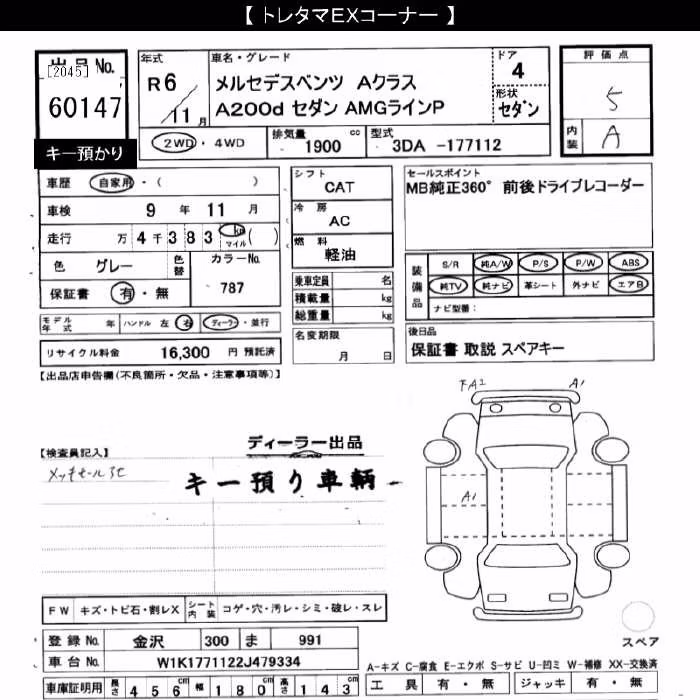 【 トレタマEXコーナー 】
出品 No.
[2045]
60147
キー預かり
年式
R6/11月
車名・グレード
メルセデスベンツ Aクラス
A200d セダン AMGラインP
ドア
4
形状
セダン
評価点
5
内装
A
2WD・4WD
排気量
1900 cc
型式
3DA -177112
車歴 自家用・( )
車検 9 年 11 月
走行 万 4 千 3 8 3 km マイル ( )
色 グレー
色替
カラーNo.
787
保証書 有・無
シフト
CAT
冷房
AC
燃料
軽油
乗車定員 名
積載量 kg
総重量 kg
セールスポイント
MB純正360° 前後ドライブレコーダー
装備品
S/R 純A/W P/S P/W ABS
純TV 純ナビ 革シート 外ナビ エアB
ナビ型番:
モデル年式 年 ハンドル 左 右 ディーラー・並行
リサイクル料金 16,300 円 預託済
名変期限
月 日
後日品
保証書 取説 スペアキー
【出品店申告欄(不良箇所・欠品・注意事項等)】
FA1
A1
A1
【検査員記入】
ディーラー出品
キー預り車輌
FW キズ・トビ石・割レX
シート内装 コゲ・穴・汚レ・シミ・破レ・スレ
登録 No. 金沢 300 ま 991
車台 No. W1K1771122J479334
車庫証明用 長さ 456 cm 幅 180 cm 高さ 143 cm
スペア
A-キズ C-腐食 E-エクボ S-サビ U-凹ミ W-補修 XX-交換済
工具 有・無 ジャッキ 有・無